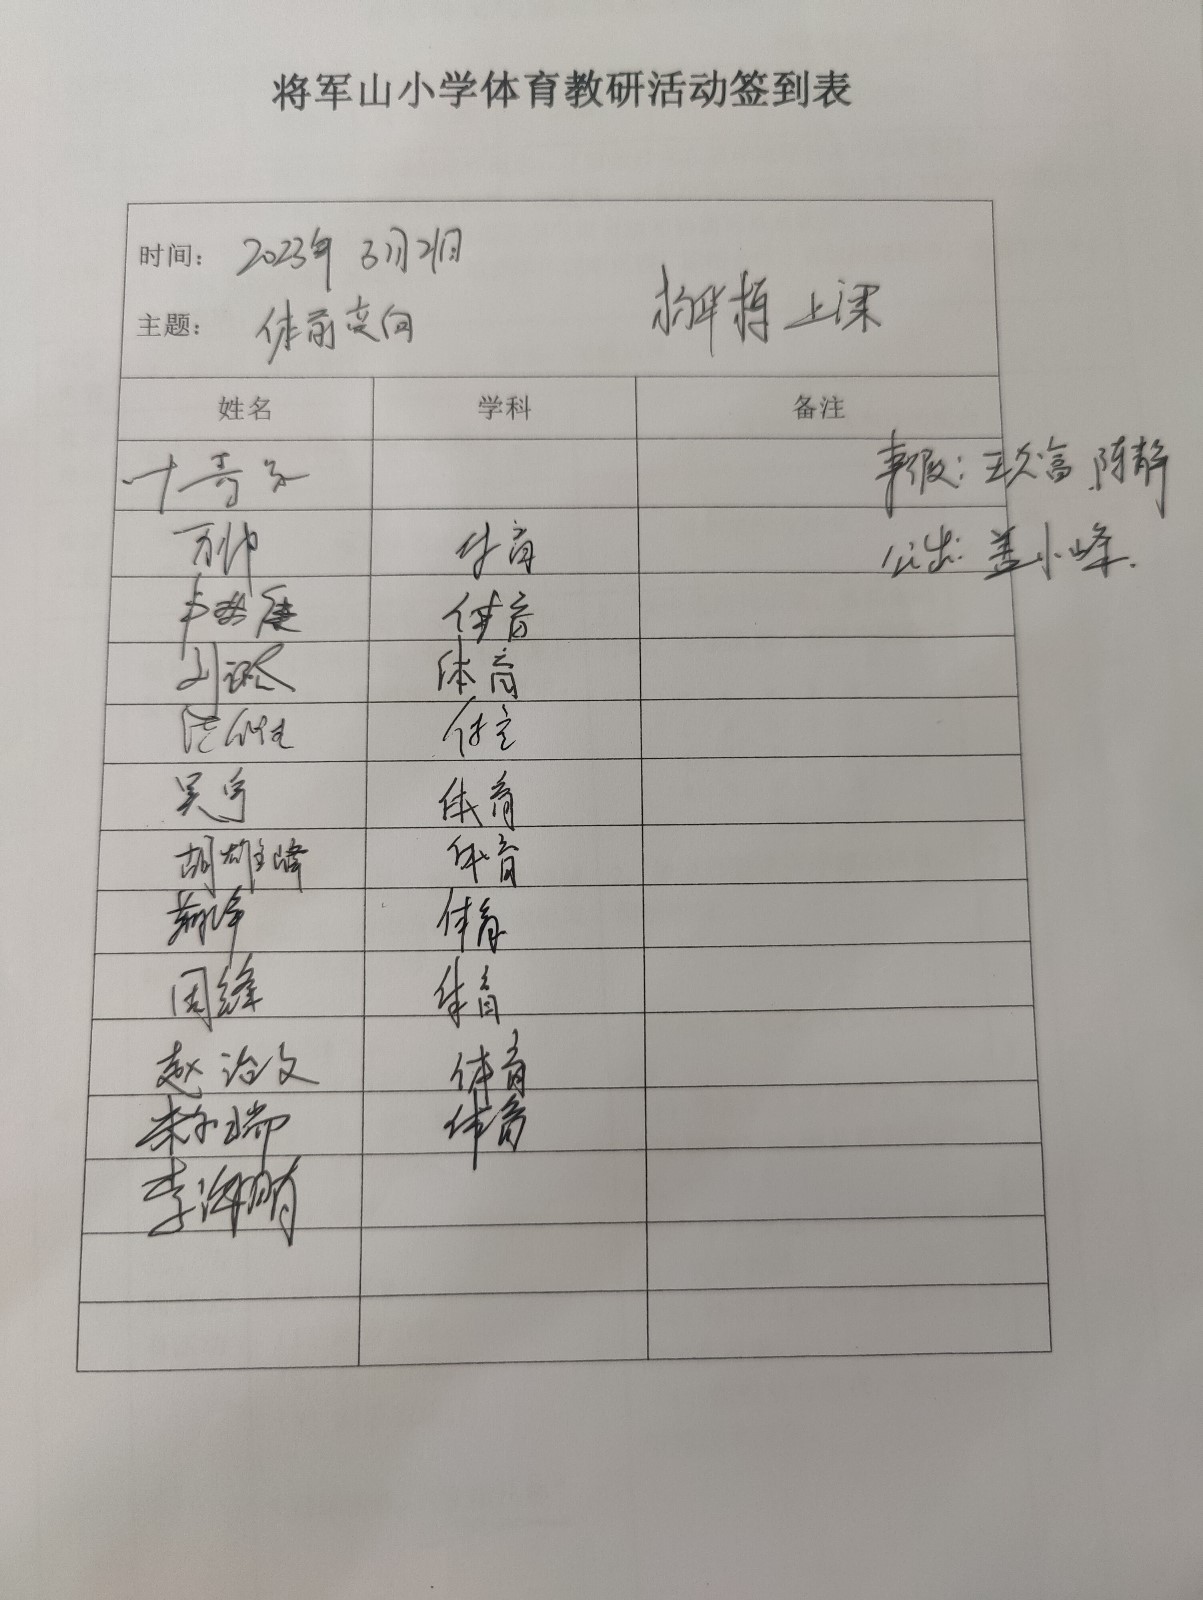 将军山小学体育教研活动签到表
时间： 2023年 3月21日
主题： 体前变向 上课
姓名 学科 备注
事假：王久富 陈静
万帅 体育
公出：盖小峰.
体育
刘 体育
体育
吴宇 体育
胡雄峰 体育
体育
周缘 体育
赵治文 体育
朱尔瑞 体育
李海明